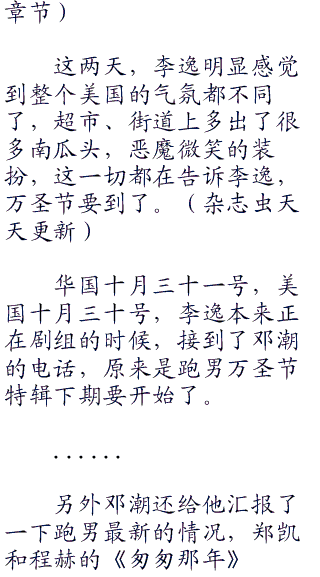 章节）
这两天，李逸明显感觉
到整个美国的气氛都不同
了，超市、街道上多出了很
多南瓜头，恶魔微笑的装
扮，这一切都在告诉李逸，
万圣节要到了。（杂志虫天
天更新）
华国十月三十一号，美
国十月三十号，李逸本来正
在剧组的时候，接到了邓潮
的电话，原来是跑男万圣节
特辑下期要开始了。
······
另外邓潮还给他汇报了
一下跑男最新的情况，郑凯
和程赫的《匆匆那年》